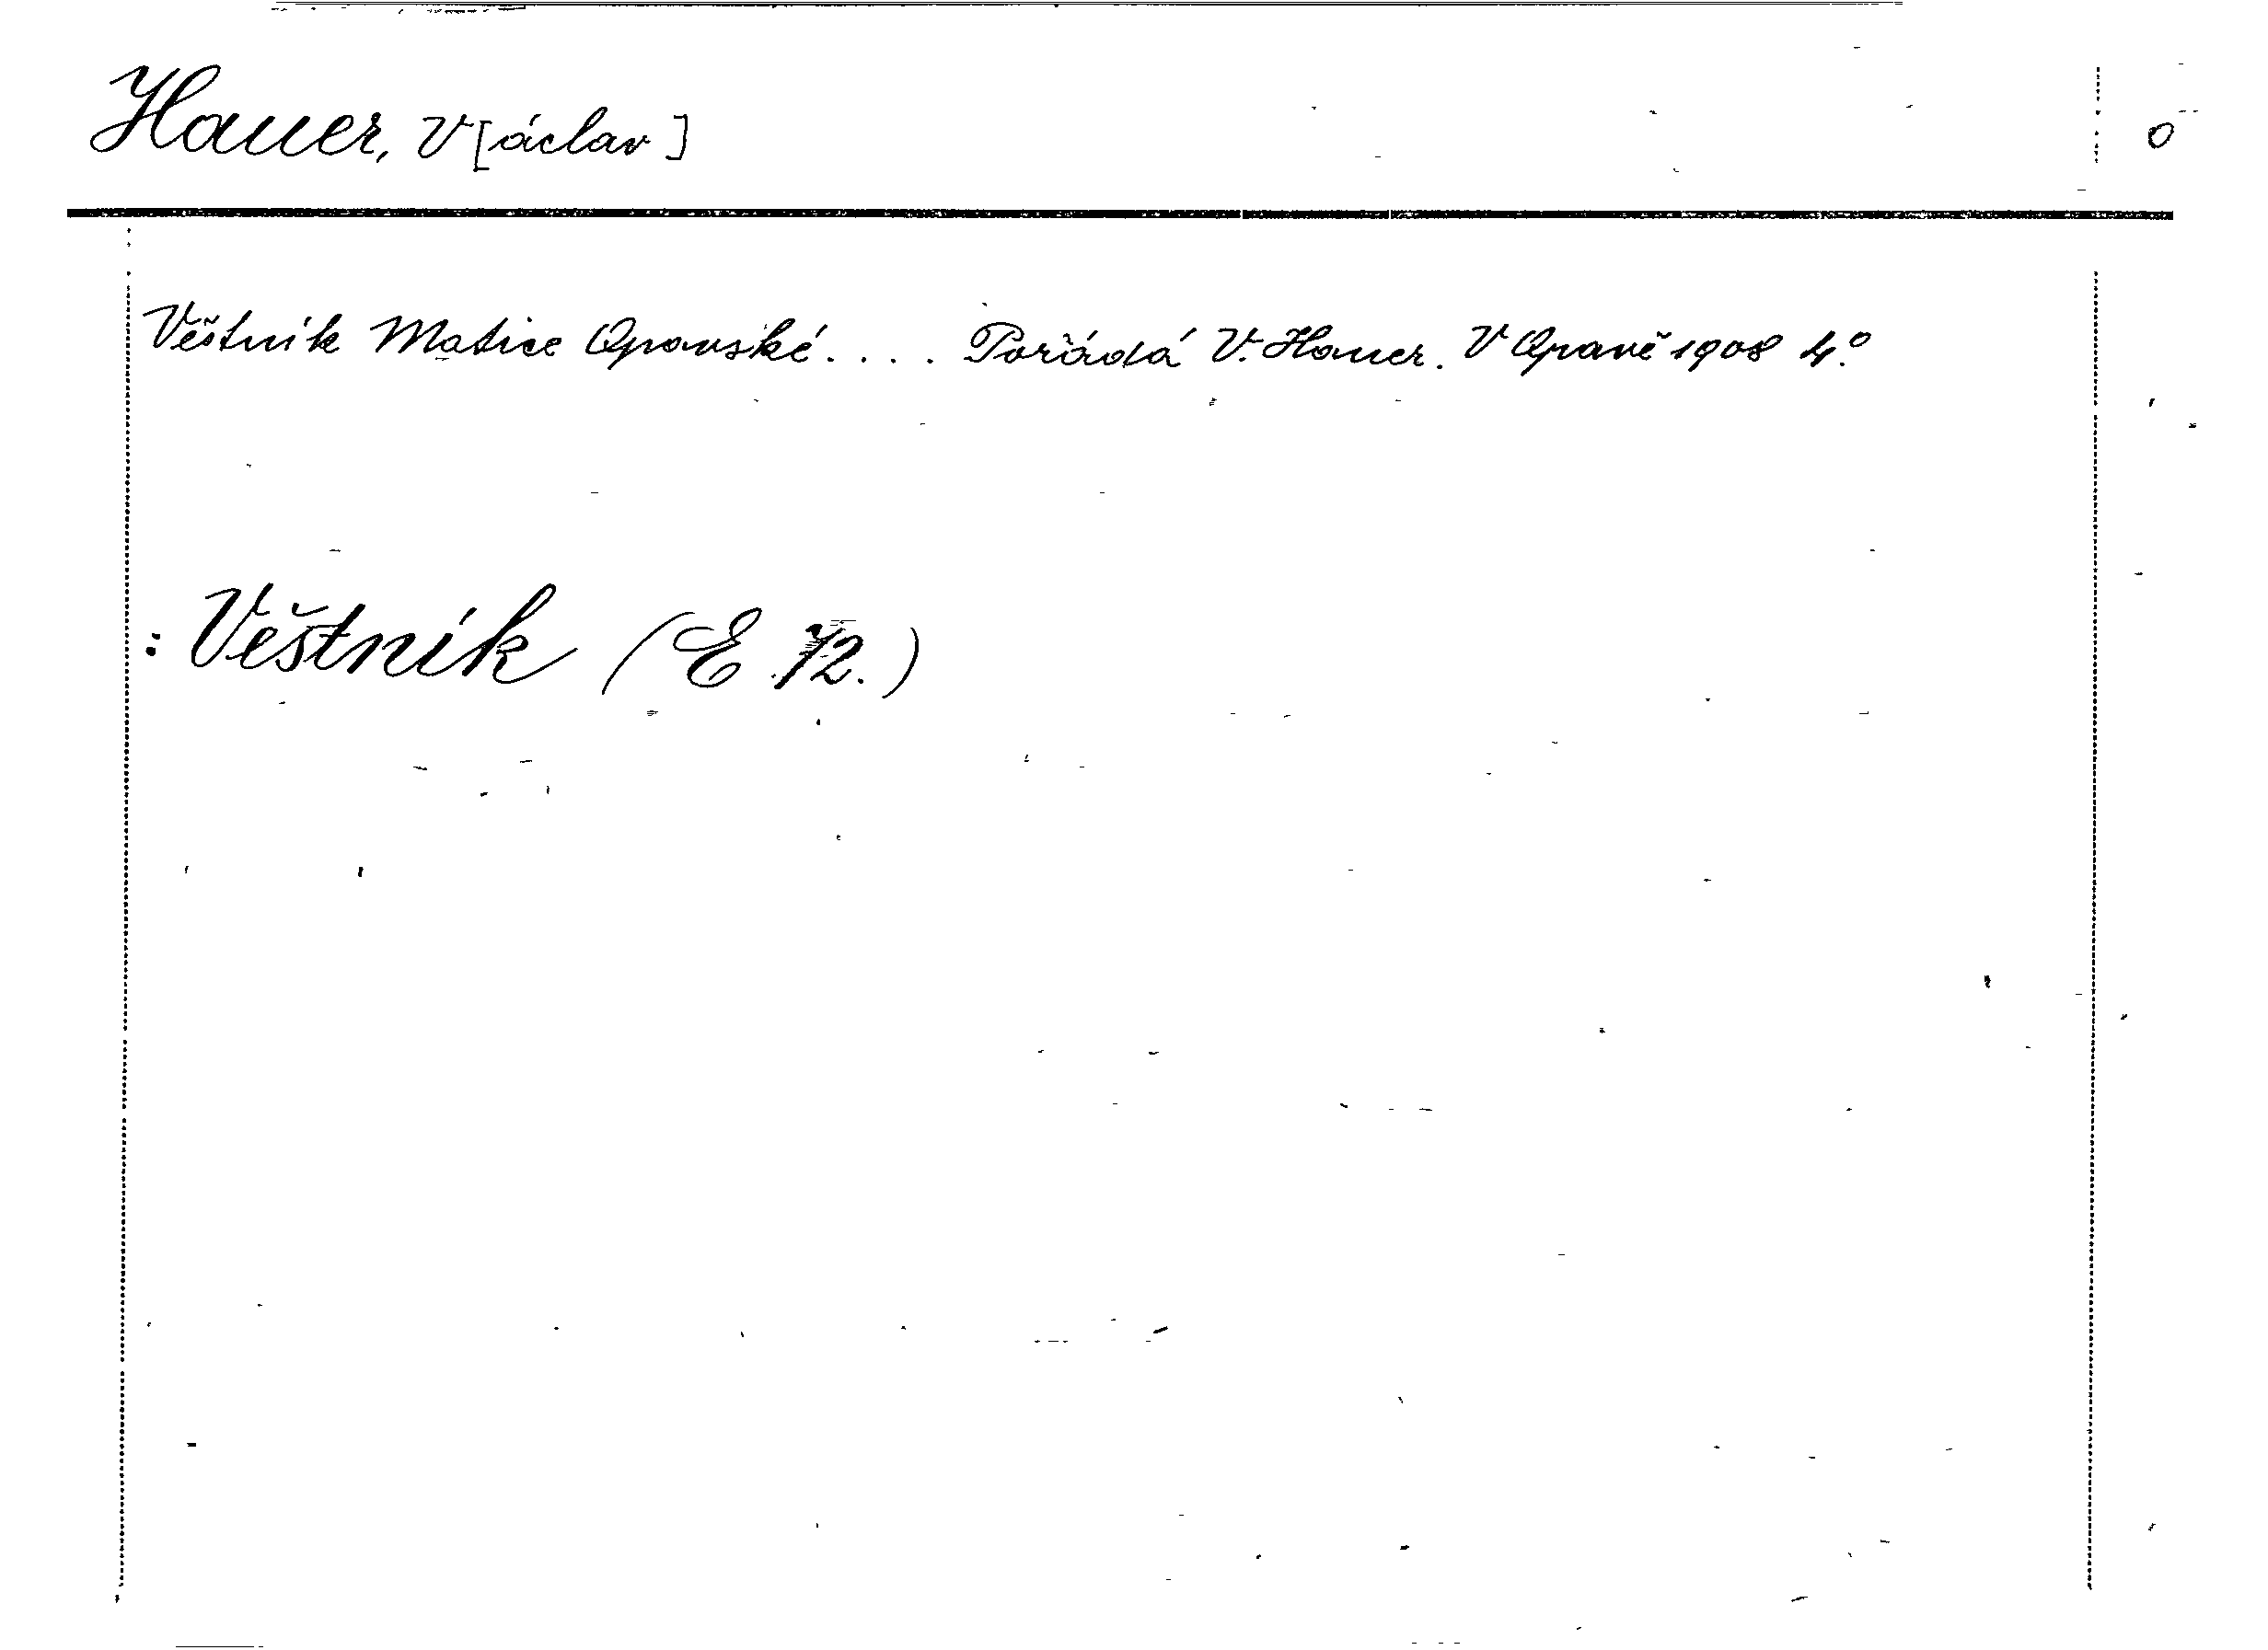 Hauer, V[áclav] 0
Věstník Matice Opavské.... Pořádá V. Hauer. V Opavě 1908 4.º
: Věstník (E 72.)